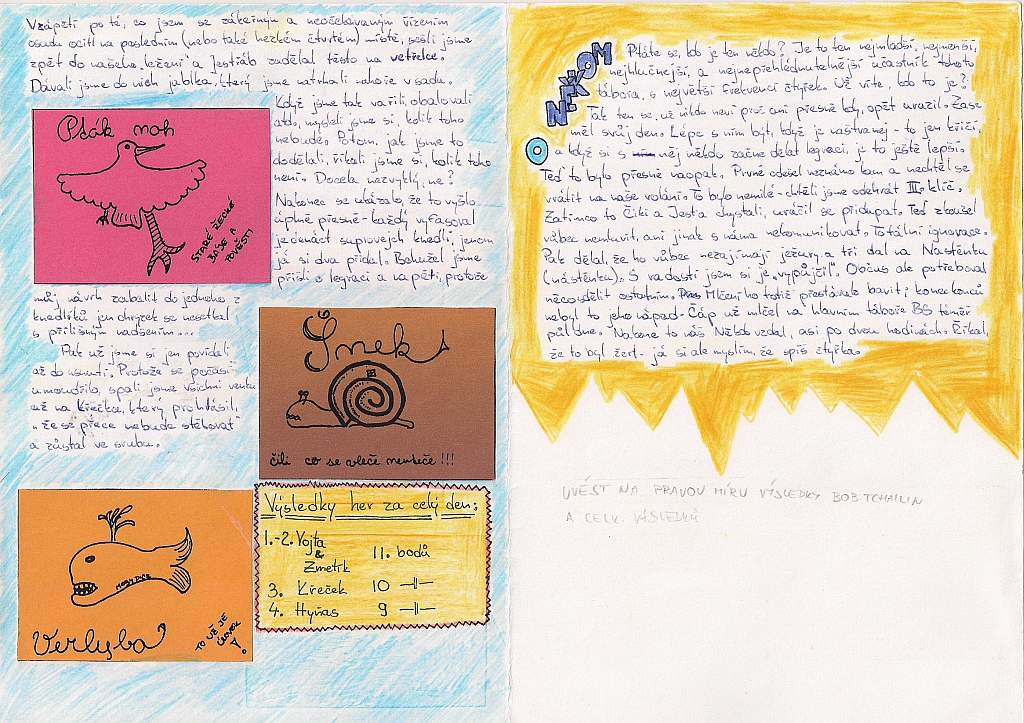 Vzápětí po té, co jsem se zákeřným a neočekávaným řízením
osudu ocitl na posledním (nebo také hezkém čtvrtém) místě, sešli jsme
zpět do našeho ležení a Jestřáb zadělal těsto na větrlce.
Dávali jsme do nich jablka, který jsme natrhali nahoře v sadu.
Když jsme tak vařili, obalovali
atd., mysleli jsme si, kolik toho
nebude. Potom, jak jsme to
dodělali, říkali jsme si, kolik toho
není. Docela nezvyklý, ne?
Nakonec se ukázalo, že to vyšlo
úplně přesně - každý vyfasoval
jedenáct suprovejch knedlí, jenom
já si dva přidal. Bohužel jsme
přišli o legraci a napětí, protože
můj návrh zabalit do jednoho z
knedlíků jen ohryzek se nesetkal
s přílišným nadšením...
Pak už jsme si jen povídali
až do usnutí. Protože se počasí
umoudřilo, spali jsme všichni venku
až na Křečka, který prohlásil,
"že se přece nebude stěhovat"
a zůstal ve srubu.
Pták noh
STARÉ ŘECKÉ
BÁJE A
POVĚSTI
Šnek
čili co se vleče neuteče!!!
MOBY DICK
Verlyba
TO UŽ JE
ÚROVEŇ!
Výsledky her za celý den:
1.-2. Vojta
&
Zmetrk
11. bodů
3. Křeček 10 -||-
4. Hyňas 9 -||-
NĚKOM
Ptáte se, kdo je ten někdo? Je to ten nejmladší, nejmenší,
nejhlučnější, a nejnepřehlédnutelnější účastník tohoto
tábora, s největší frekvencí čtyřek. Už víte, kdo to je?
Tak ten se, už nikdo neví proč ani přesně kdy, opět urazil. Zase
měl svůj den. Lépe s ním být, když je naštvanej - to jen křičí,
a když si s něj někdo začne dělat legraci, je to ještě lepší.
Teď to bylo přesně naopak. Prvně odešel neznámo kam a nechtěl se
vrátit na naše volání. To bylo nemilé - chtěli jsme odehrát III. klíč.
Zatímco to Čiki a Jesťa chystali, uráčil se přidupat. Teď zkoušel
vůbec nemluvit, ani jinak s náma nekomunikovat. Totální ignorace.
Pak dělal, že ho vůbec nezajímají ježury a tři dal na Nástěnku
(nástěnku). S radostí jsem si je "vypůjčil". Občas ale potřeboval
něco sdělit ostatním. Mlčení ho totiž přestávalo bavit; koneckonců
nebyl to jeho nápad - Čáp už mlčel na hlavním táboře BS téměř
půl dne. Nakonec to náš Někdo vzdal, asi po dvou hodinách. Říkal,
že to byl žert - já si ale myslím, že spíš čtyřka.
UVÉST NA PRAVOU MÍRU VÝSLEDKY BOB-TCHAILIN
A CELK. VÝSLEDKŮ